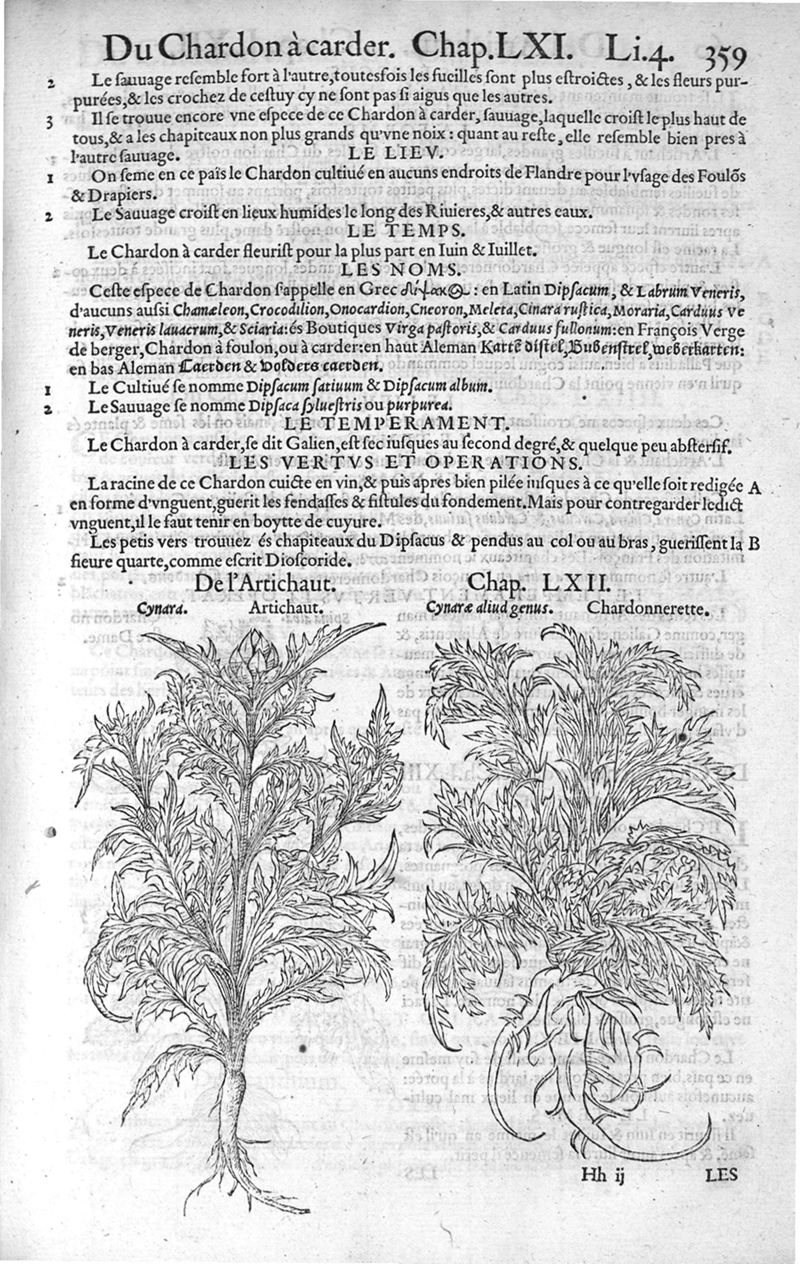 Du Chardon à carder. Chap. LXI. Li. 4. 359
2 Le ſauuage reſemble fort à l'autre, toutesfois les fueilles ſont plus eſtroictes, & les fleurs pur-
purées, & les crochez de ceſtuy cy ne ſont pas ſi aigus que les autres.
3 Il ſe trouue encore vne eſpece de ce Chardon à carder, ſauuage, laquelle croiſt le plus haut de
tous, & a les chapiteaux non plus grands qu'vne noix : quant au reſte, elle reſemble bien pres à
l'autre ſauuage. LE LIEV.
1 On ſeme en ce païs le Chardon cultiué en aucuns endroits de Flandre pour l'vſage des Foulõs
& Drapiers.
2 Le Sauuage croiſt en lieux humides le long des Riuieres, & autres eaux.
LE TEMPS.
Le Chardon à carder fleuriſt pour la plus part en Iuin & Iuillet.
LES NOMS.
Ceſte eſpece de Chardon s'appelle en Grec : en Latin Dipſacum, & Labrum Veneris,
d'aucuns auſſi Chamæleon, Crocodilion, Onocardion, Cneoron, Meleta, Cinara ruſtica, Moraria, Carduus Ve
neris, Veneris lauacrum, & Sciaria: és Boutiques Virga paſtoris, & Carduus fullonum: en François Verge
de berger, Chardon à foulon, ou à carder: en haut Aleman Kartē diſtel, Bubenſtrel, weberkarten:
en bas Aleman Caerden & volders caerden.
1 Le Cultiué ſe nomme Dipſacum ſatiuum & Dipſacum album.
2 Le Sauuage ſe nomme Dipſaca ſylueſtris ou purpurea.
LE TEMPERAMENT.
Le Chardon à carder, ſe dit Galien, eſt ſec iuſques au ſecond degré, & quelque peu abſterſif.
LES VERTVS ET OPERATIONS.
La racine de ce Chardon cuicte en vin, & puis apres bien pilée iuſques à ce qu'elle ſoit redigée A
en forme d'vnguent, guerit les fendaſſes & fiſtules du fondement. Mais pour contregarder ledict
vnguent, il le faut tenir en boytte de cuyure.
Les petis vers trouuez és chapiteaux du Dipſacus & pendus au col ou au bras, gueriſſent la B
fieure quarte, comme eſcrit Dioſcoride.
De l'Artichaut. Chap. LXII.
Cynara. Artichaut. Cynaræ aliud genus. Chardonnerette.
Hh ij LES